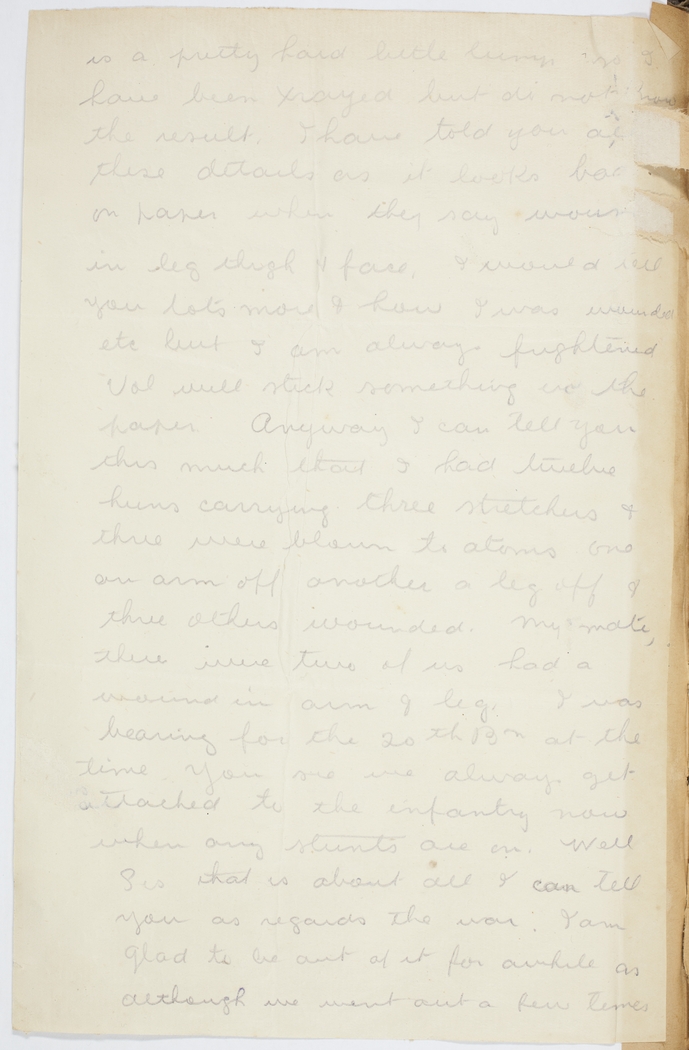 is a pretty hard little lump so I
have been Xrayed but do not know
the result. I have told you all
these details as it looks bad
on paper when they say wound
in leg thigh & face. I would tell
you lots more & how I was wounded
etc but I am always frightened
Val will stick something in the
paper. Anyway I can tell you
this much that I had twelve
huns carrying three stretchers &
three were blown to atoms one
an arm off another a leg off &
three others wounded. My mate,
there were two of us had a
wound in arm & leg. I was
bearing for the 20th Bn at the
time. You see we always get
attached to the infantry now
when any stunts are on. Well
Sis that is about all I can tell
you as regards the war; I am
glad to be out of it for awhile as
although we went out a few times